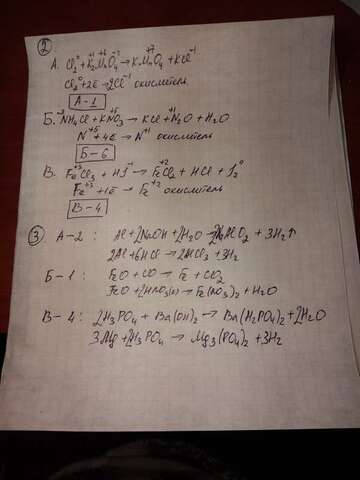 ②
А. Cl₂⁰ + K₂⁺¹Mn⁺⁶O₄⁻² → KMn⁺⁷O₄ + KCl⁻¹
Cl₂⁰ + 2ē → 2Cl⁻¹ окислитель
А-1
Б. ⁻³NH₄Cl + KN⁺⁵O₃ → KCl + N₂⁺¹O + H₂O
N⁺⁵ + 4ē → N⁺¹ окислитель
Б-6
В. Fe⁺³Cl₃ + HJ⁻¹ → Fe⁺²Cl₂ + HCl + J₂⁰
Fe⁺³ + 1ē → Fe⁺² окислитель
В-4
③ А-2 : Al + 2NaOH + 2H₂O → 2NaAlO₂ + 3H₂↑
2Al + 6HCl → 2AlCl₃ + 3H₂
Б-1 : FeO + CO → Fe + CO₂
FeO + 2HNO₃(р) → Fe(NO₃)₂ + H₂O
В-4 : 2H₃PO₄ + Ba(OH)₂ → Ba(H₂PO₄)₂ + 2H₂O
3Mg + 2H₃PO₄ → Mg₃(PO₄)₂ + 3H₂